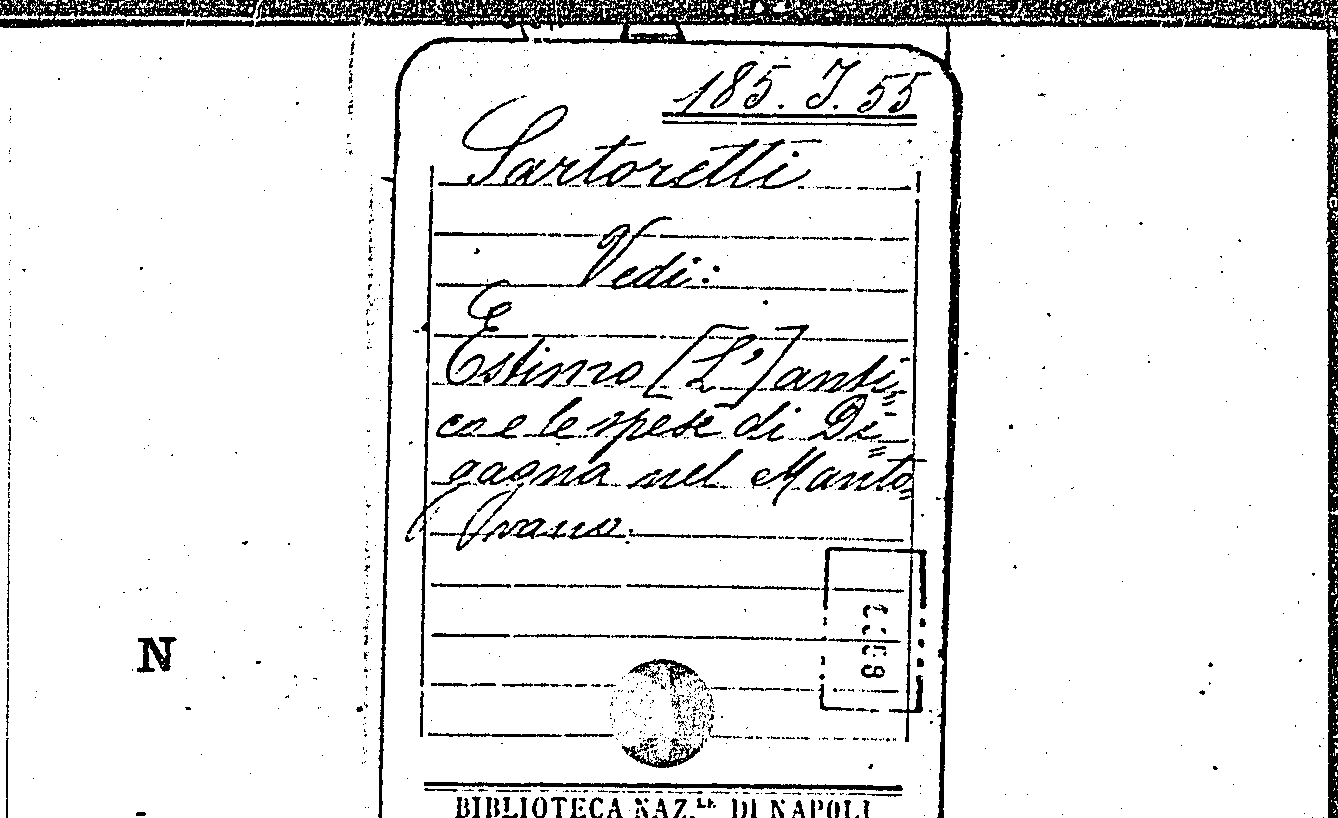 185. J. 55
Sartoretti
Vedi:
Estimo [L'] anti=
co e le spese di Di=
gagna nel Manto=
vano.
N
BIBLIOTECA NAZ.LE DI NAPOLI